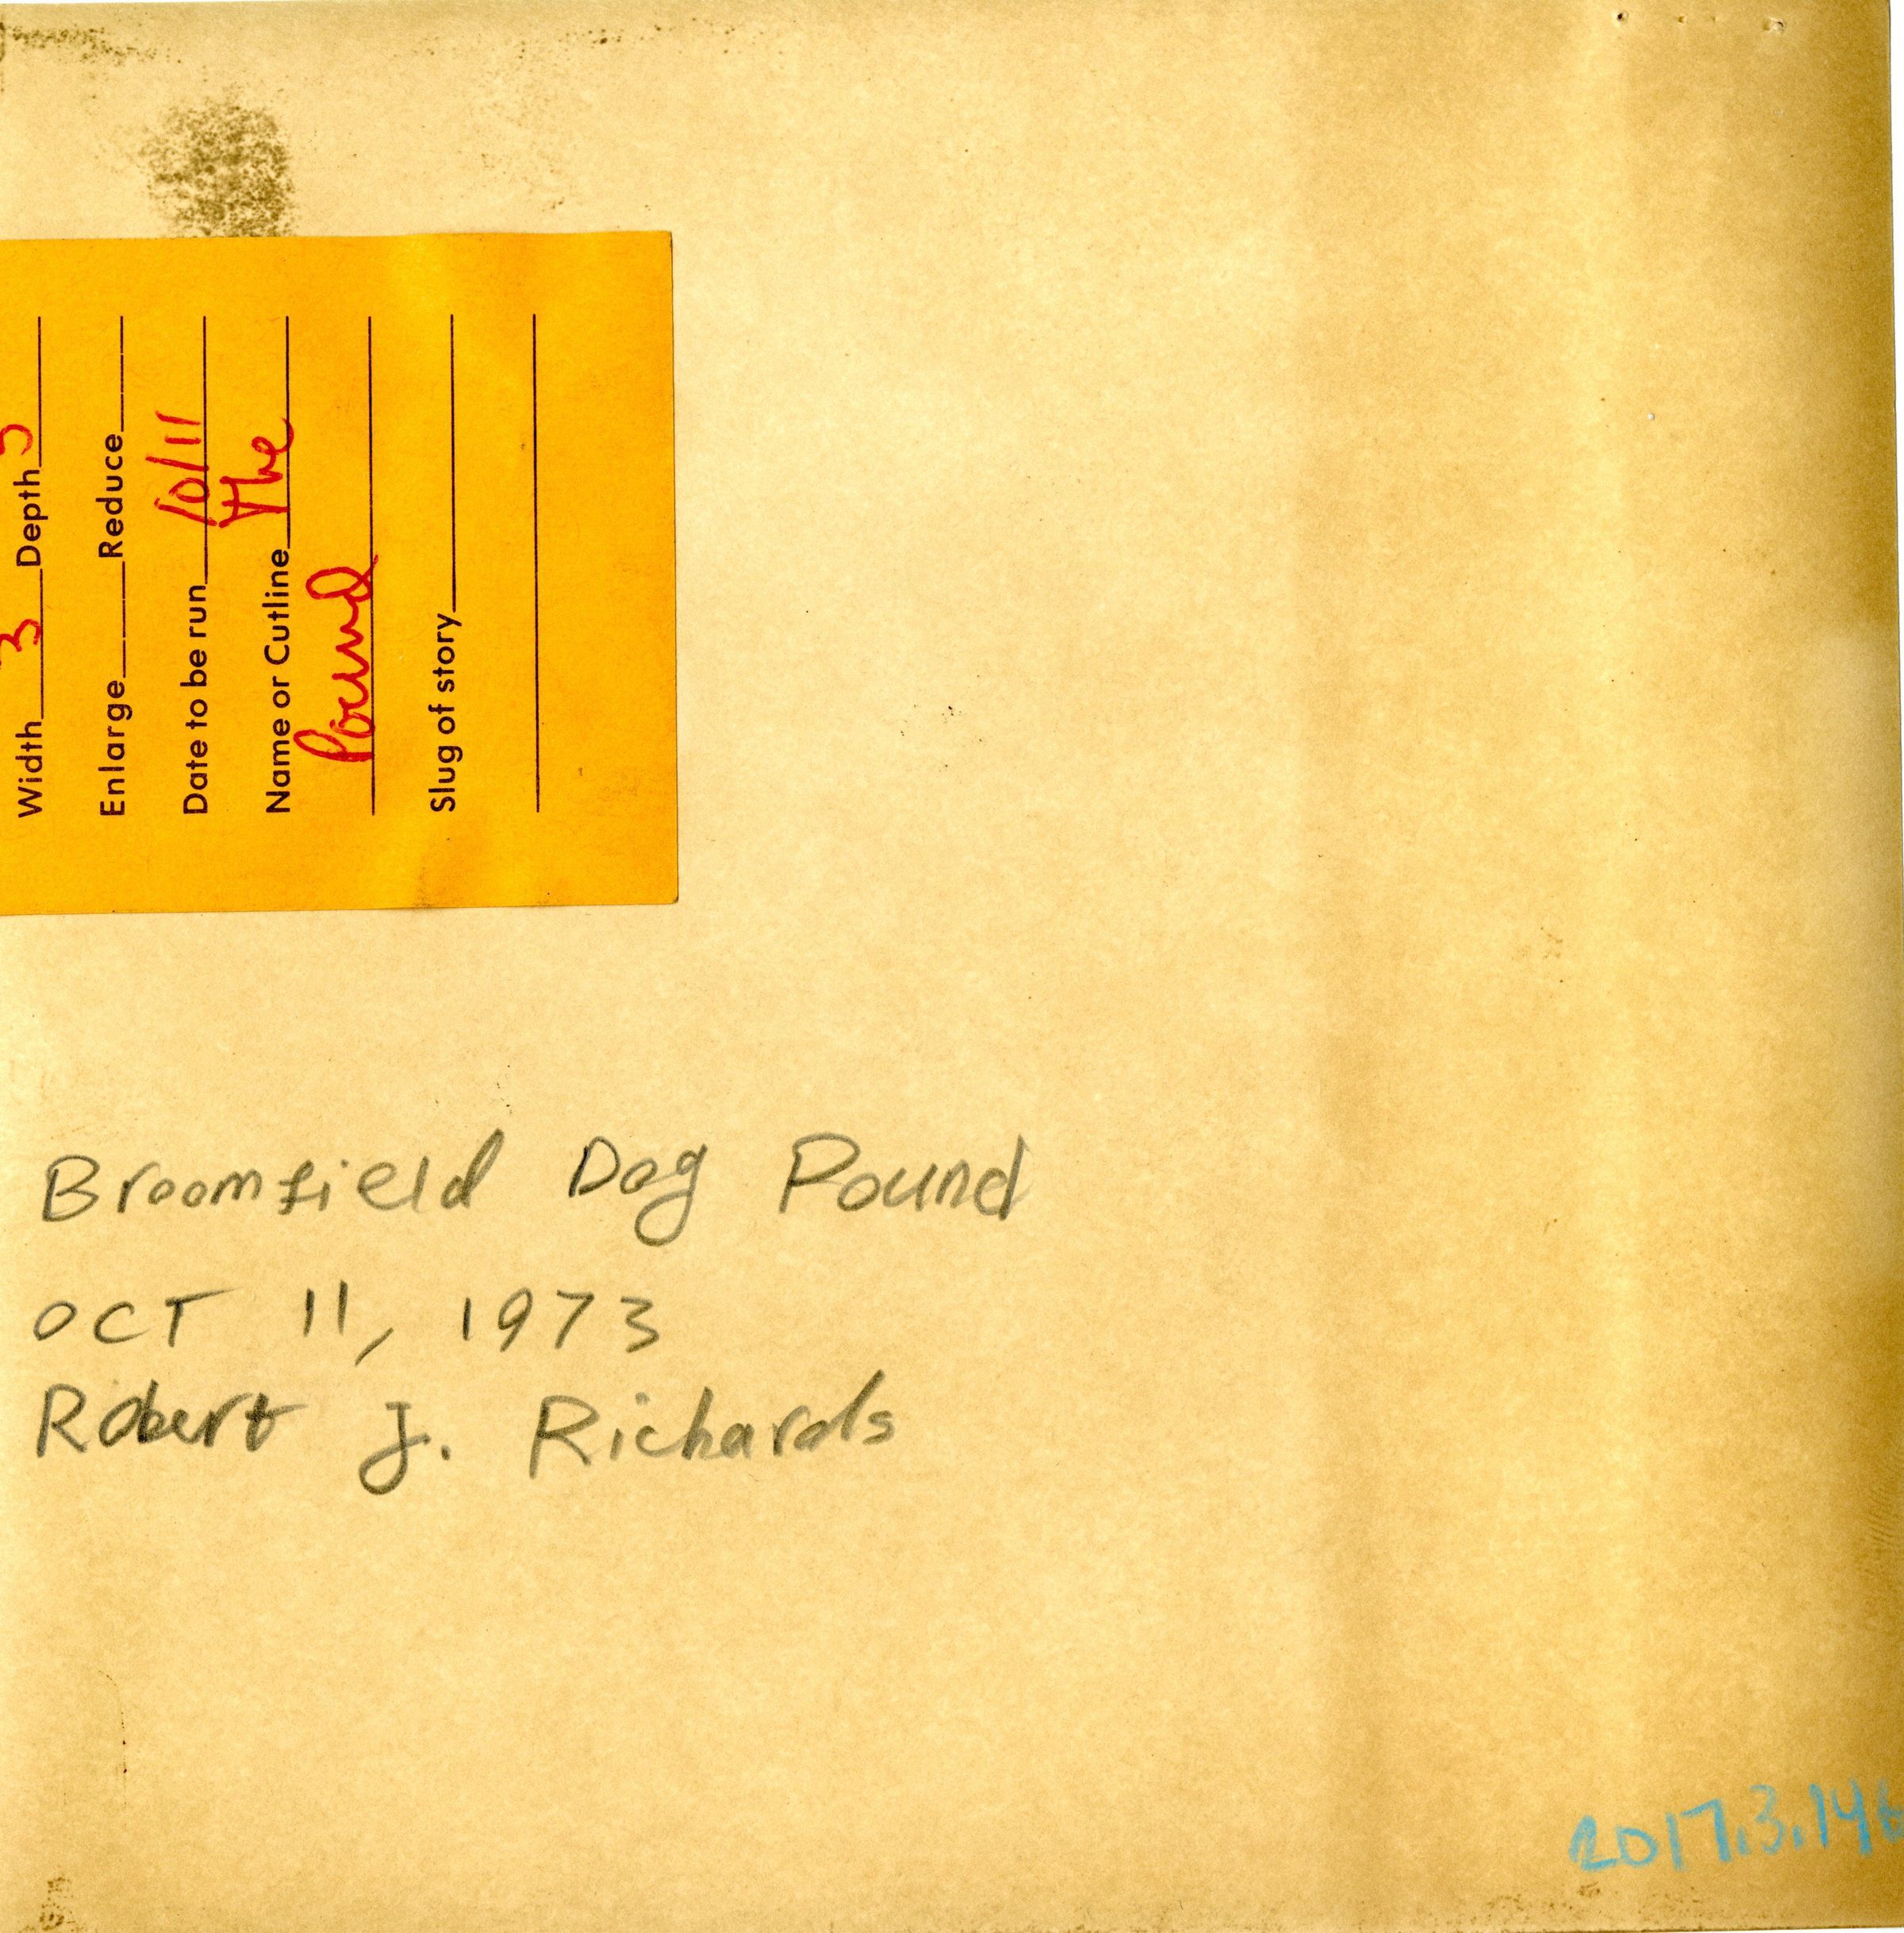 Width 3 Depth 5
Enlarge Reduce
Date to be run 10/11
Name or Cutline The
Pound
Slug of story
Broomfield Dog Pound
OCT 11, 1973
Robert J. Richards
2017.3.146